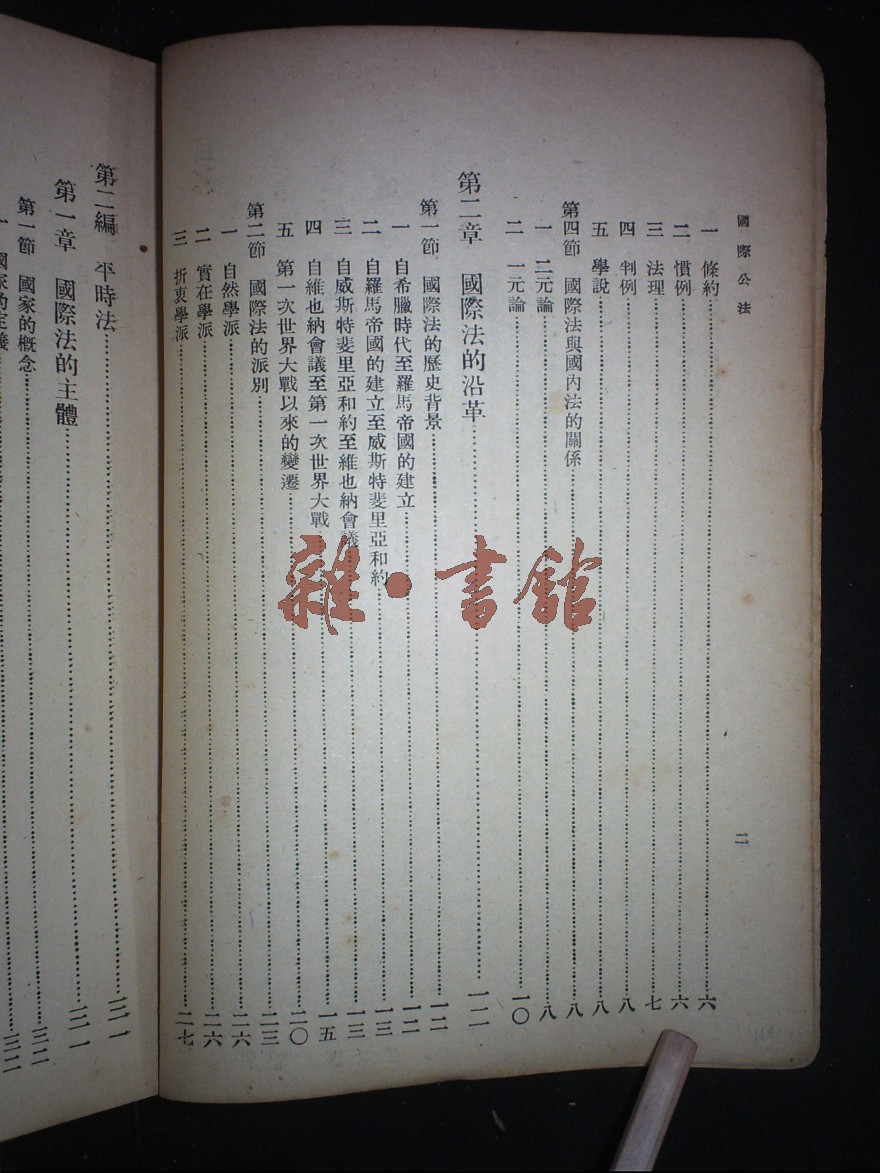 國際公法
二
一 條約……六
二 慣例……六
三 法理……七
四 判例……八
五 學說……八
第四節 國際法與國內法的關係……八
一 二元論……八
二 一元論……一〇
第二章 國際法的沿革……一二
第一節 國際法的歷史背景……一二
一 自希臘時代至羅馬帝國的建立……一二
二 自羅馬帝國的建立至威斯特斐里亞和約……一三
三 自威斯特斐里亞和約至維也納會議……一三
四 自維也納會議至第一次世界大戰……一五
五 第一次世界大戰以來的變遷……二〇
第二節 國際法的派別……二三
一 自然學派……二六
二 實在學派……二六
三 折衷學派……二七
第二編 平時法……三一
第一章 國際法的主體……三一
第一節 國家的概念……三二
一 國家的定義……三二
雜·書館